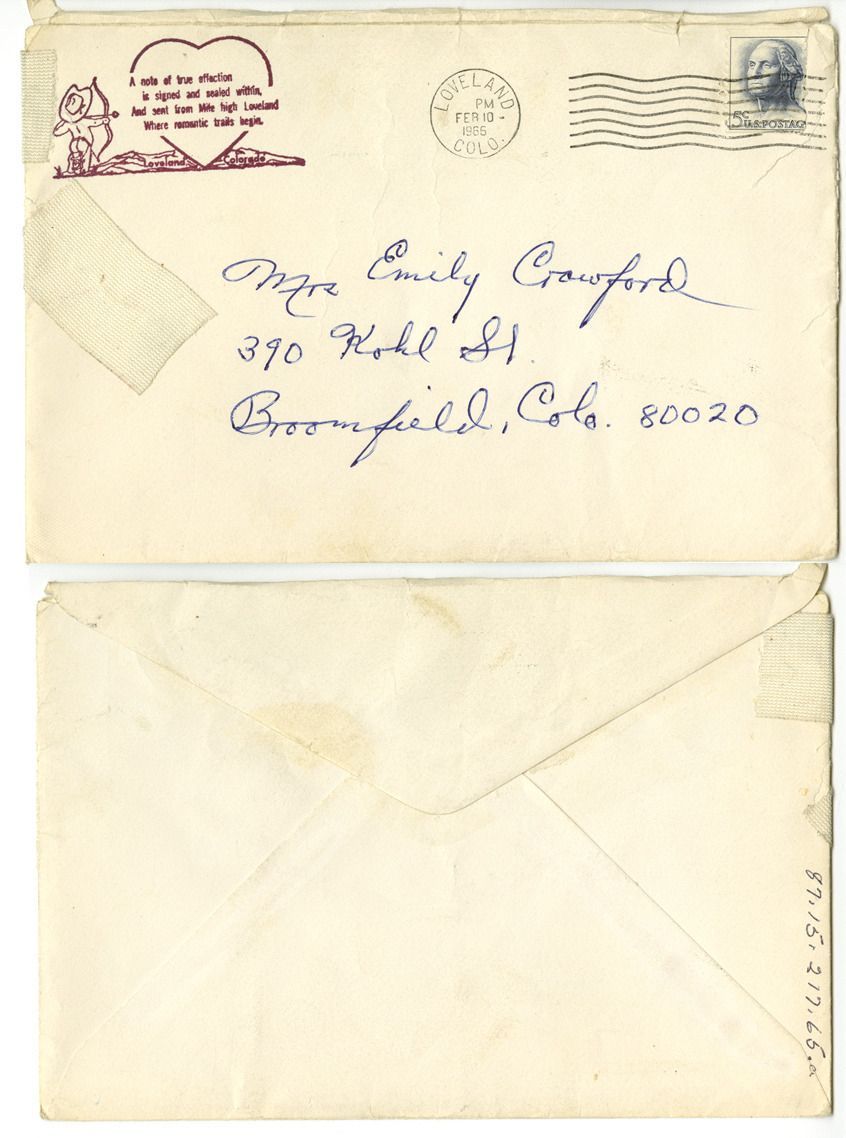 A note of true affection
is signed and sealed within,
And sent from Mile high Loveland
Where romantic trails begin.
Loveland Colorado
LOVELAND
PM
FEB 10
1965
COLO.
5c U.S. POSTAGE
Mrs Emily Crawford
390 Kohl St.
Broomfield, Colo. 80020
87.15.217.65.a